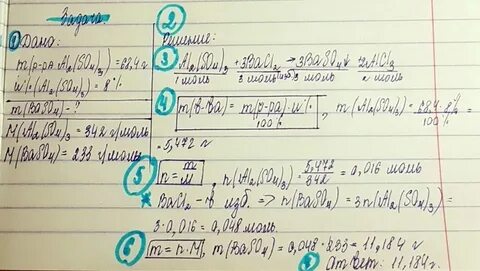 Задача
① Дано:
m(р-ра Al₂(SO₄)₃) = 68,4 г
w% (Al₂(SO₄)₃) = 8%
m(BaSO₄) - ?
M(Al₂(SO₄)₃ = 342 г/моль
M(BaSO₄) = 233 г/моль
② Решение:
③ Al₂(SO₄)₃ + 3BaCl₂ → 3BaSO₄↓ + 2AlCl₃
1 моль 3 моль (изб) 3 моль 2 моль
④ m(в-ва) = m(р-ра)·w% / 100% , m(Al₂(SO₄)₃) = 68,4·8% / 100% =
= 5,472 г
⑤ n = m/M , n(Al₂(SO₄)₃) = 5,472/342 = 0,016 моль
* BaCl₂ - в изб. => n(BaSO₄) = 3n(Al₂(SO₄)₃) =
= 3·0,016 = 0,048 моль
⑥ m = n·M , m(BaSO₄) = 0,048·233 = 11,184 г
Ответ: 11,184 г.